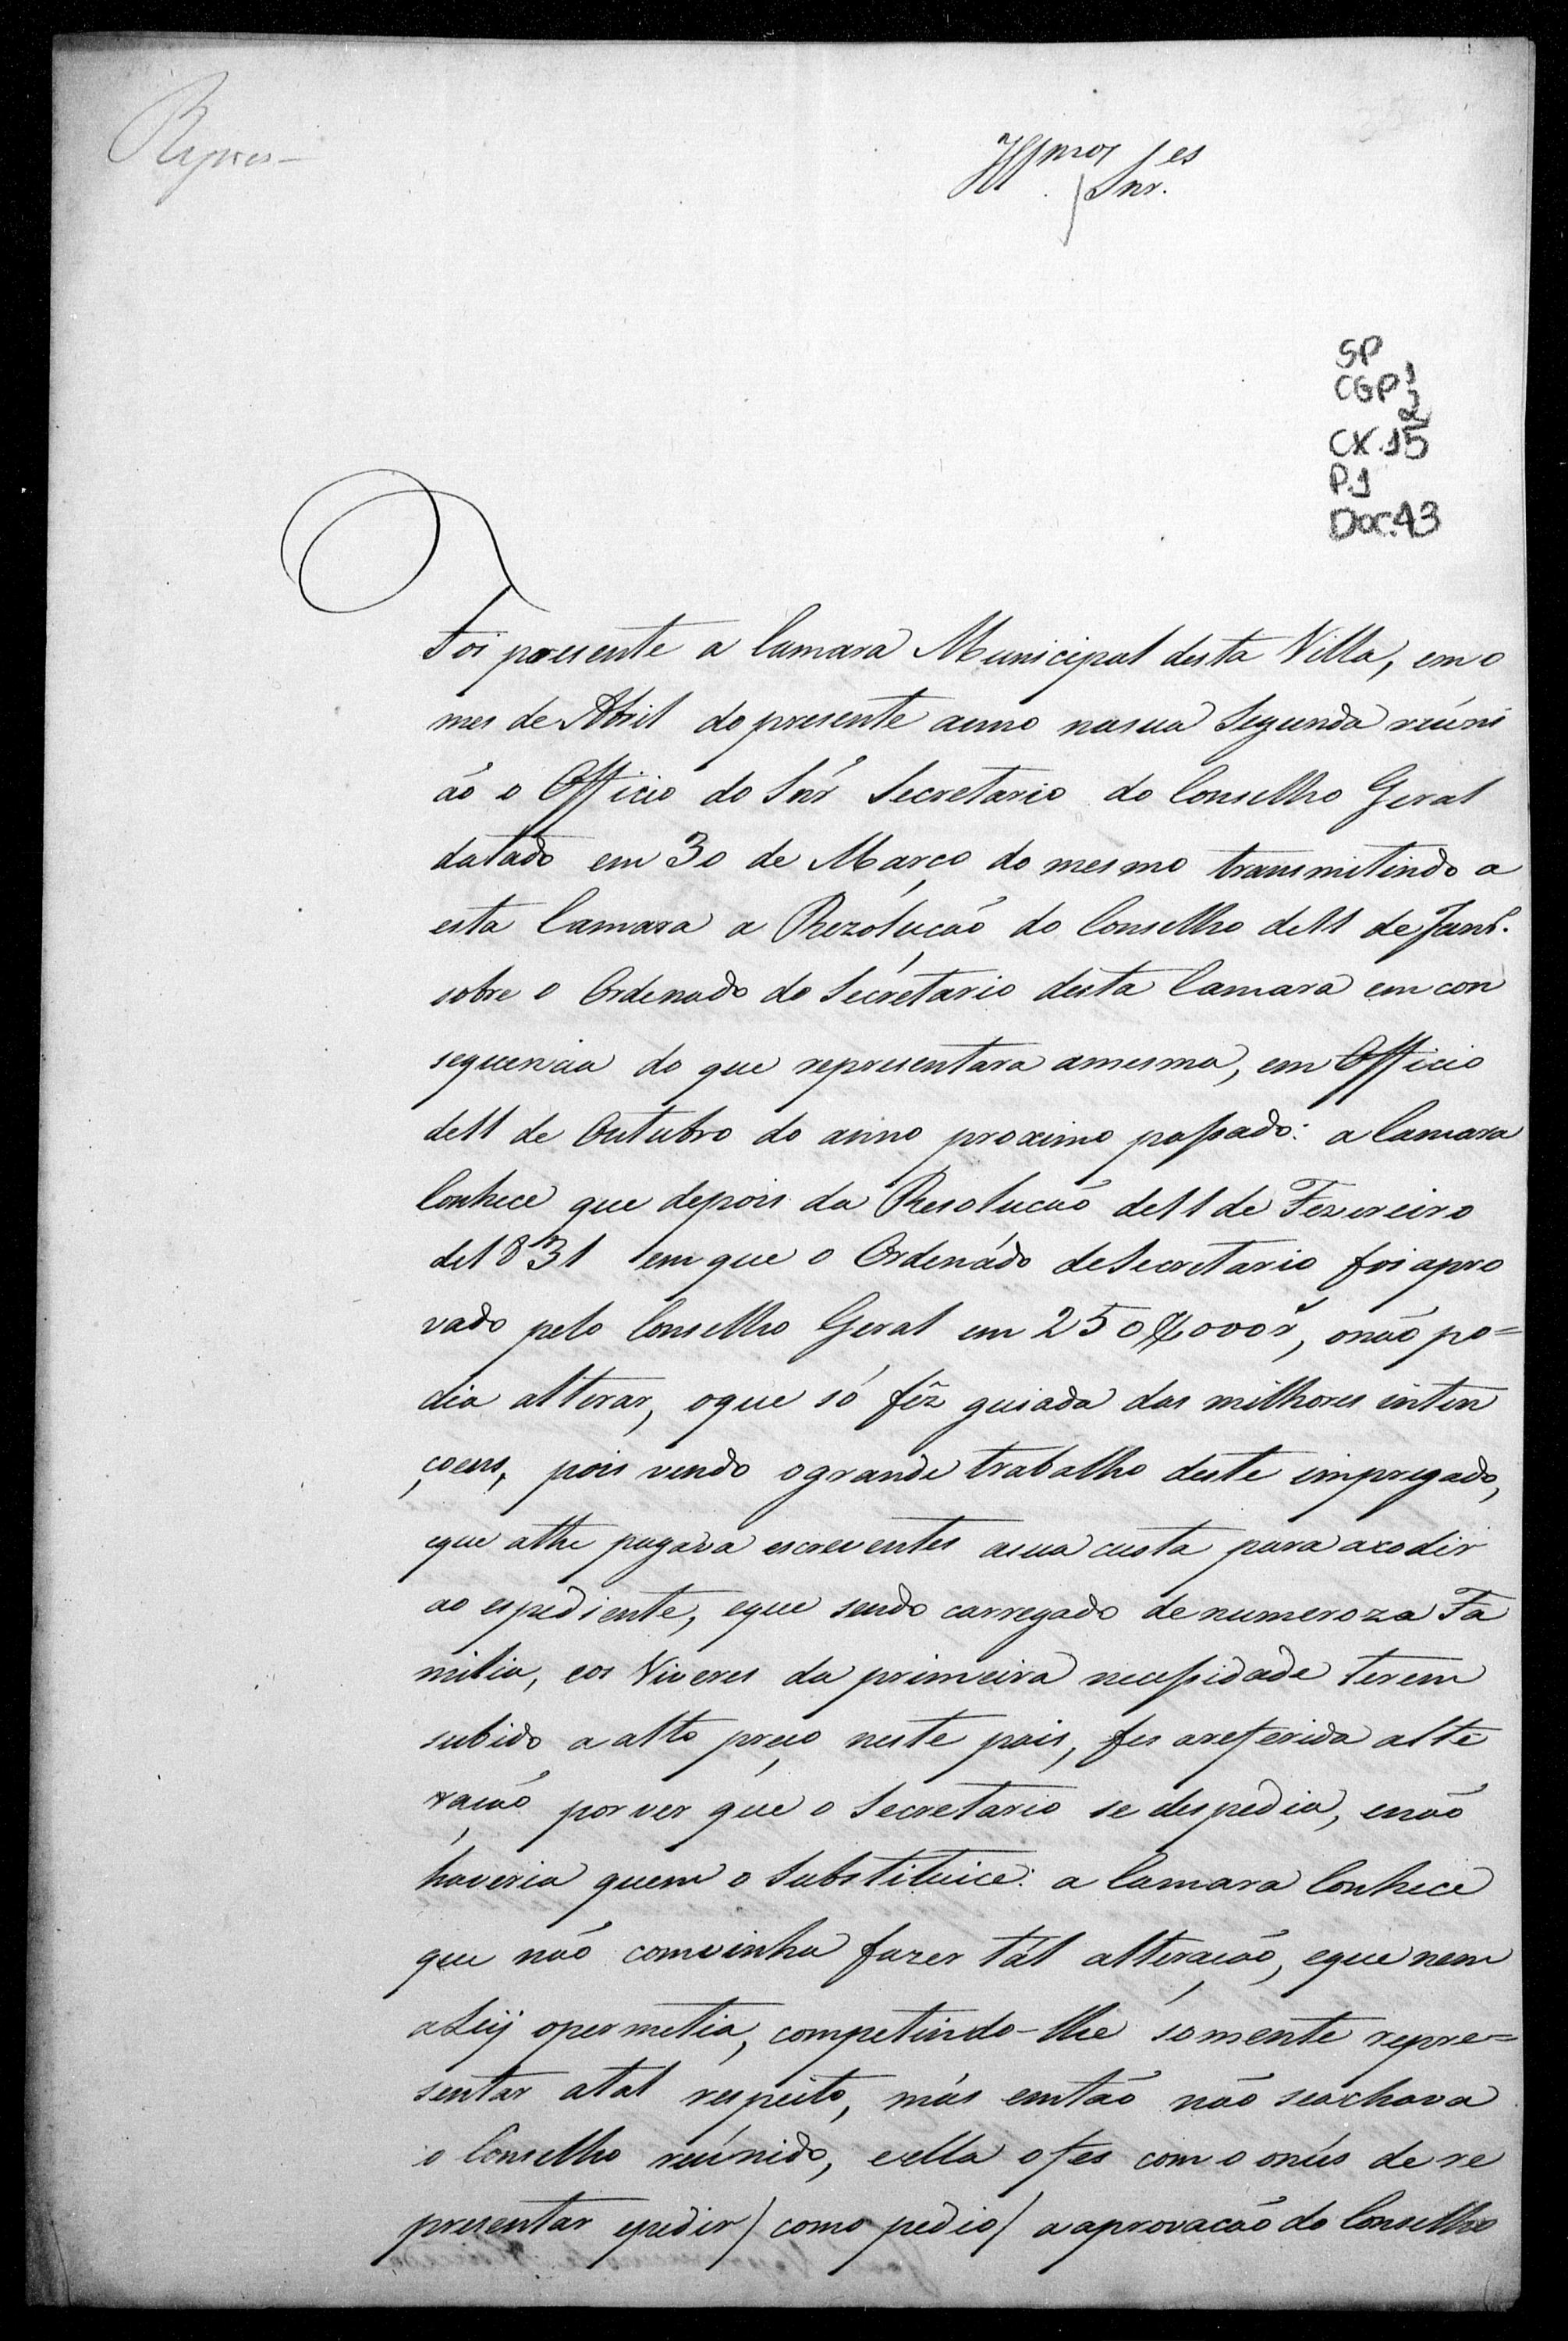 Repres—
Illmos Snr.es
SP
CGP1
2
CX.15
P.1
Doc.43
Foi presente a Camara Municipal desta Villa, em o
mes de Abril do presente anno nasua Segunda reúni
áo o Officio do Snr Secretario do Conselho Geral
datado em 30 de Março do mesmo transmitindo a
esta Camara a Rezólução do Conselho de 11 de Janr.
sobre o Ordenado do Secretario desta Camara em con
sequencia do que representara amesma, em Officio
de 11 de Outubro do anno proximo passado: a Camara
Conhece que depois da Resolução de 11 de Fevereiro
de 1831 em que o Ordenádo deSecretario foi apro
vado pelo Conselho Geral em 250$000 r, onão po=
dia alterar, oque só fêz guiada das milhores inten
çoens, pois vendo ogrande trabalho deste impregado,
eque athe pagava escreventes asua custa para acodir
ao espediente, eque sendo carregado de numeroza Fa
milia, eos Viveres da primeira necessidade terem
subido a alto preço neste pais, fes areferida alte
ração por ver que o Secretario se despedia, enão
haveria quem o Substituice: a Camara Conhece
que não comvinha fazer tál alteração, eque nem
aLeij opermetia, competindo-lhe somente repre=
sentar atal respeito, más emtão não seachava
o Conselho reúnido, eella ofes com o onús de re
presentar epedir / como pedio / a aprovação do Conselho